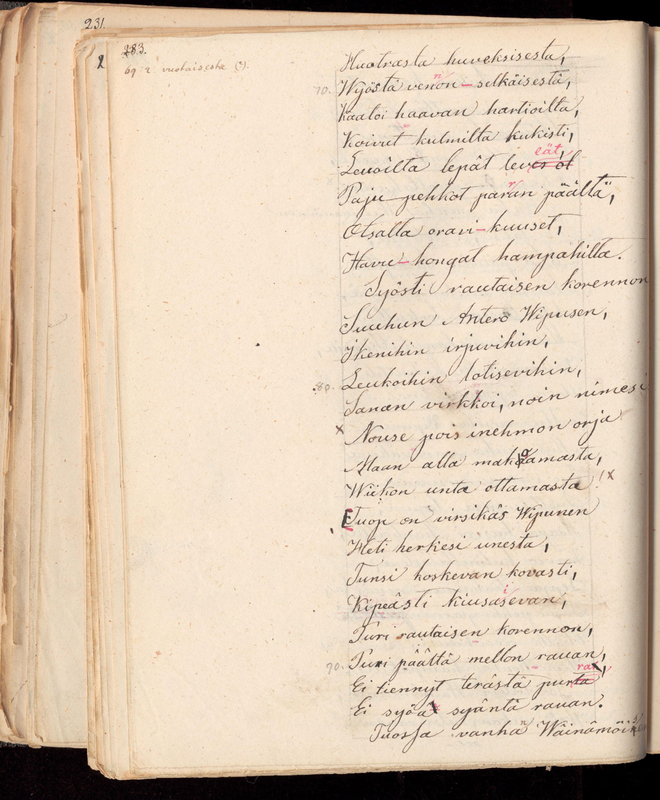 231.
283.
69 2 vuotaisesta (?).
Huotrasta huveksisesta,
70. Wyöstä venon-selkäisestä,
Kaatoi haavan hartioilta,
Koivut kulmilta kukisti,
eät,
Leuoilta lepät lever öl
Paju-pehkot paran päältä,
Otsalta oravi-kuuset,
Havu-hongat hampahilta.
Syösti rautaisen korennon
Suuhun Antero Wipusen,
Ikenihin irjuvihin,
80. Leukoihin lotisevihin,
Sanan virkkoi, noin nimesi
x Nouse pois inehmon orja
Maan alla makaamasta,
Wiikon unta ottamasta! x
[Tuop on virsikäs Wipunen
Heti herkesi unesta,
Tunsi koskevan kovasti,
Kipeästi kiusasevan,
Puri rautaisen korennon,
90. Puri päättä mellon rauan,
ra
Ei tiennyt terästä purta
Ei syöä syäntä rauan.
Tuossa vanha Wäinämöinen